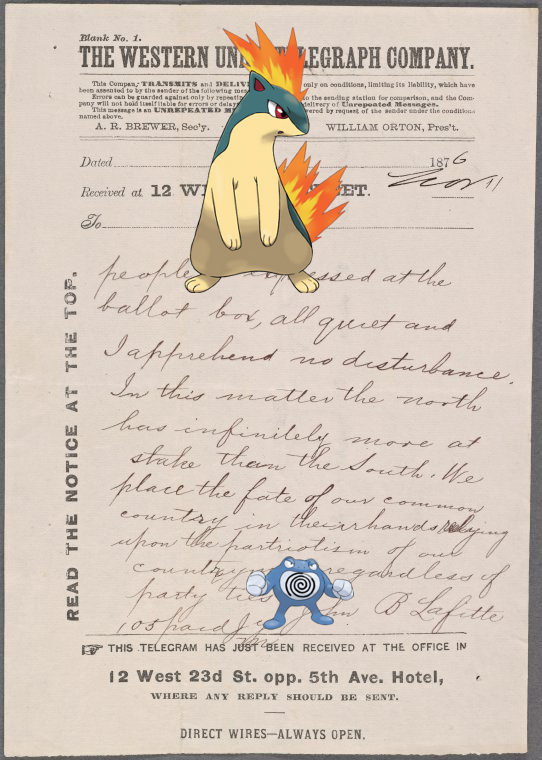 Blank No. 1.
THE WESTERN UN TELEGRAPH COMPANY.
This Company TRANSMITS and DELIV only on conditions, limiting its liability, which have
been assented to by the sender of the following mes
Errors can be guarded against only by repeati to the sending station for comparison, and the Com-
pany will not hold itself liable for errors or delay delivery of Unrepeated Messages.
This message is an UNREPEATED M ered by request of the sender under the conditions
named above.
A. R. BREWER, Sec'y. WILLIAM ORTON, Pres't.
Dated 1876
Nov 11
Received at 12 W EET.
To
READ THE NOTICE AT THE TOP.
people essed at the
ballot box, all quiet and
I apprehend no disturbance.
In this matter the north
has infinitely more at
stake than the South. We
place the fate of our common
country in their hands relying
upon the partriotism of our
country regardless of
party ties B Lafitte
105 paid
THIS TELEGRAM HAS JUST BEEN RECEIVED AT THE OFFICE IN
12 West 23d St. opp. 5th Ave. Hotel,
WHERE ANY REPLY SHOULD BE SENT.
DIRECT WIRES—ALWAYS OPEN.